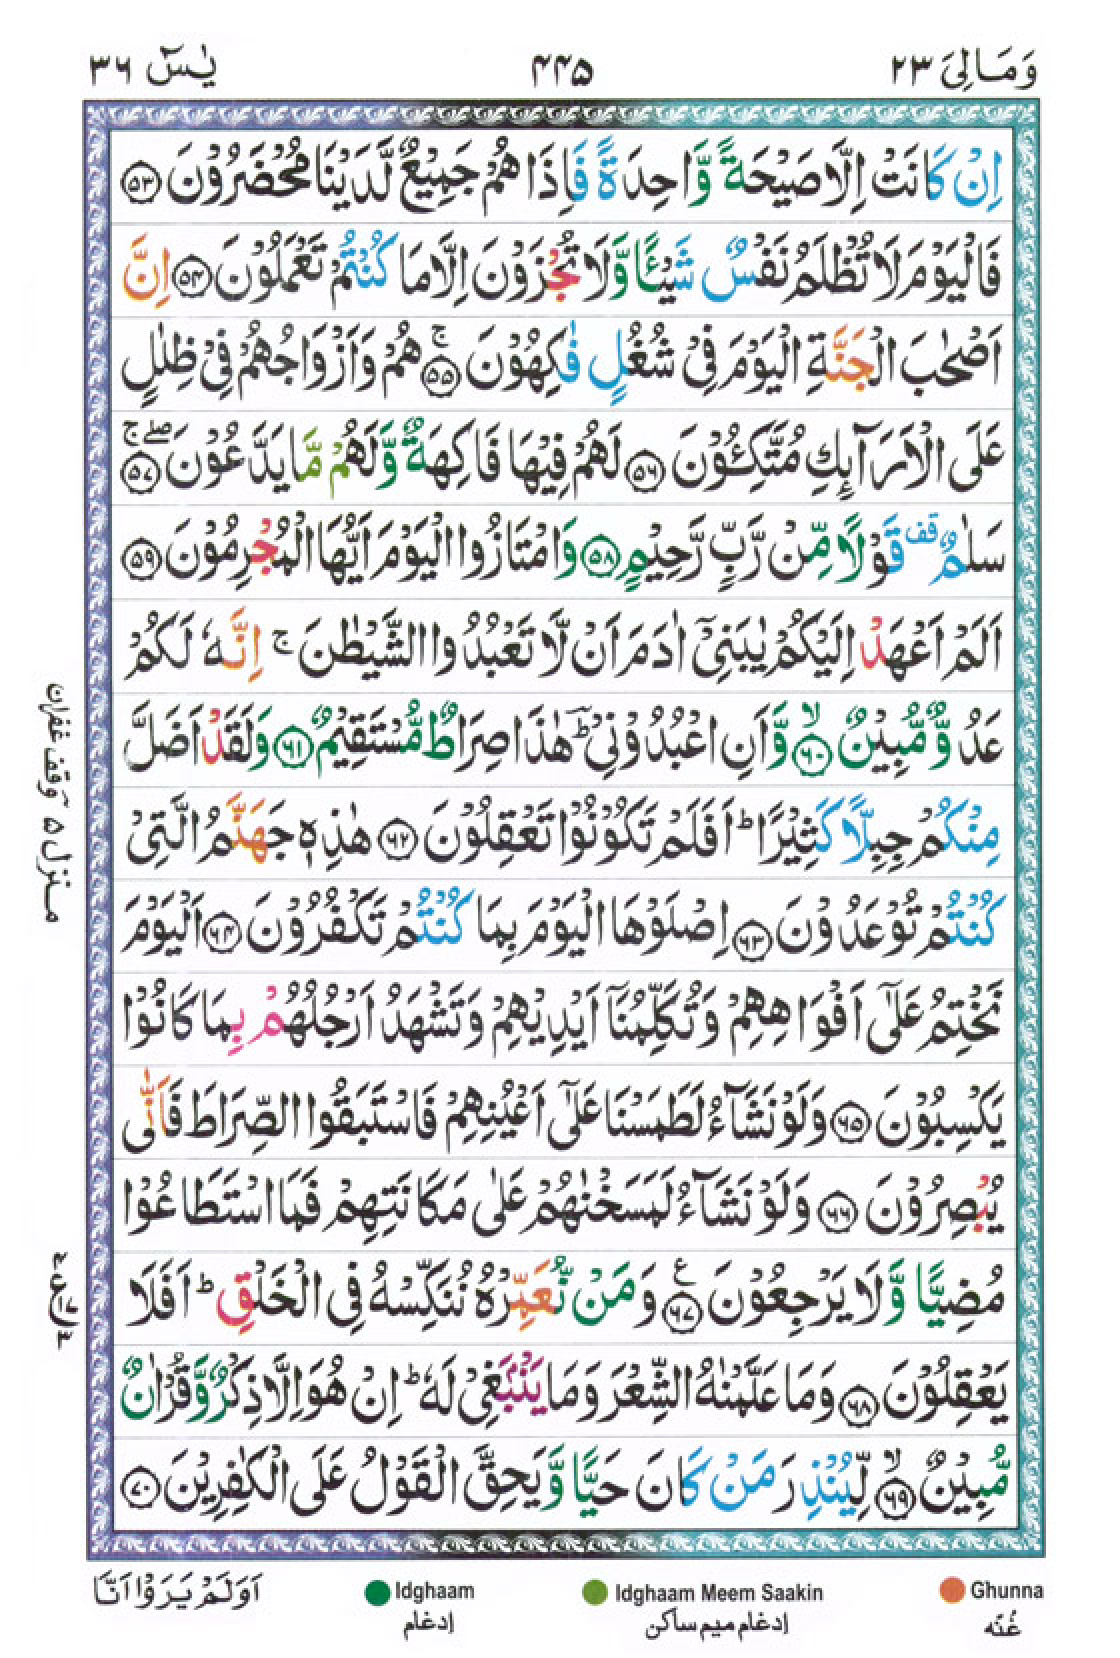 وَمَالِیَ ٢٣
۴۴۵
یٰسٓ ٣٦
اِنْ كَانَتْ اِلَّا صَیْحَةً وَّاحِدَةً فَاِذَا هُمْ جَمِیْعٌ لَّدَیْنَا مُحْضَرُوْنَ ﴿۵۳﴾
فَالْیَوْمَ لَا تُظْلَمُ نَفْسٌ شَیْـًٔا وَّلَا تُجْزَوْنَ اِلَّا مَا كُنْتُمْ تَعْمَلُوْنَ ﴿۵۴﴾ اِنَّ
اَصْحٰبَ الْجَنَّةِ الْیَوْمَ فِیْ شُغُلٍ فٰكِهُوْنَ ۚ﴿۵۵﴾ هُمْ وَاَزْوَاجُهُمْ فِیْ ظِلٰلٍ
عَلَی الْاَرَآىِٕكِ مُتَّكِـُٔوْنَ ﴿۵۶﴾ لَهُمْ فِیْهَا فَاكِهَةٌ وَّلَهُمْ مَّا یَدَّعُوْنَ ۖۚ﴿۵۷﴾
سَلٰمٌ قف قَوْلًا مِّنْ رَّبٍّ رَّحِیْمٍ ﴿۵۸﴾ وَامْتَازُوا الْیَوْمَ اَیُّهَا الْمُجْرِمُوْنَ ﴿۵۹﴾
اَلَمْ اَعْهَدْ اِلَیْكُمْ یٰبَنِیْۤ اٰدَمَ اَنْ لَّا تَعْبُدُوا الشَّیْطٰنَ ۚ اِنَّهٗ لَكُمْ
عَدُوٌّ مُّبِیْنٌ ۙ﴿۶۰﴾ وَّاَنِ اعْبُدُوْنِیْ ؕؔ هٰذَا صِرَاطٌ مُّسْتَقِیْمٌ ﴿۶۱﴾ وَلَقَدْ اَضَلَّ
مِنْكُمْ جِبِلًّا كَثِیْرًا ؕ اَفَلَمْ تَكُوْنُوْا تَعْقِلُوْنَ ﴿۶۲﴾ هٰذِهٖ جَهَنَّمُ الَّتِیْ
كُنْتُمْ تُوْعَدُوْنَ ﴿۶۳﴾ اِصْلَوْهَا الْیَوْمَ بِمَا كُنْتُمْ تَكْفُرُوْنَ ﴿۶۴﴾ اَلْیَوْمَ
نَخْتِمُ عَلٰۤی اَفْوَاهِهِمْ وَتُكَلِّمُنَاۤ اَیْدِیْهِمْ وَتَشْهَدُ اَرْجُلُهُمْ بِمَا كَانُوْا
یَكْسِبُوْنَ ﴿۶۵﴾ وَلَوْ نَشَآءُ لَطَمَسْنَا عَلٰۤی اَعْیُنِهِمْ فَاسْتَبَقُوا الصِّرَاطَ فَاَنّٰی
یُبْصِرُوْنَ ﴿۶۶﴾ وَلَوْ نَشَآءُ لَمَسَخْنٰهُمْ عَلٰی مَكَانَتِهِمْ فَمَا اسْتَطَاعُوْا
مُضِیًّا وَّلَا یَرْجِعُوْنَ ع ﴿۶۷﴾ وَمَنْ نُّعَمِّرْهُ نُنَكِّسْهُ فِی الْخَلْقِ ؕ اَفَلَا
یَعْقِلُوْنَ ﴿۶۸﴾ وَمَا عَلَّمْنٰهُ الشِّعْرَ وَمَا یَنْۢبَغِیْ لَهٗ ؕ اِنْ هُوَ اِلَّا ذِكْرٌ وَّقُرْاٰنٌ
مُّبِیْنٌ ۙ﴿۶۹﴾ لِّیُنْذِرَ مَنْ كَانَ حَیًّا وَّیَحِقَّ الْقَوْلُ عَلَی الْكٰفِرِیْنَ ﴿۷۰﴾
منزل ۵ وقف غفران
اَوَلَمْ یَرَوْا اَنَّا
Idghaam
إدغام
Idghaam Meem Saakin
إدغام ميم ساكن
Ghunna
غُنّه